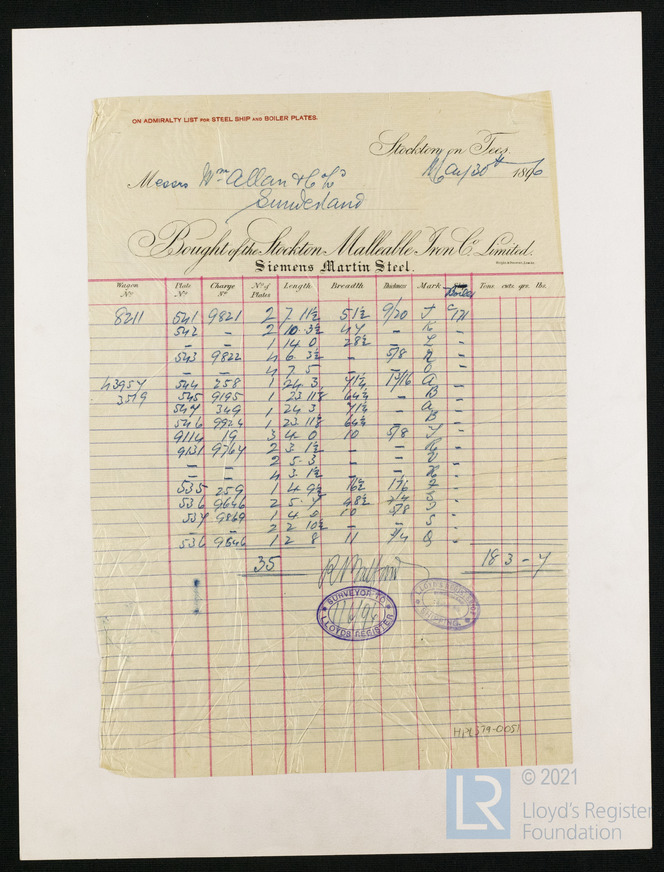 ON ADMIRALTY LIST FOR STEEL SHIP AND BOILER PLATES.
Stockton on Tees.
May 30th 1896
Messrs Wm Allan & Co Ld
Sunderland
Bought of the Stockton Malleable Iron Co. Limited.
Siemens Martin Steel.
Wagon No. Plate No. Charge No. No. of Plates Length. Breadth. Thickness Mark Boiler Tons cwts. qrs. lbs.
8211 541 9821 2 7 11½ 51½ 9/20 J C/171
542 – 2 10 3½ 44 – K "
– – 1 14 0 28½ – L "
543 9822 4 6 3½ – 5/8 N "
– – 4 7 5 – – O "
43954 544 258 1 24 3 71½ 1 1/16 A "
3519 545 9195 1 23 11⅝ 64½ – B "
547 349 1 24 3 71½ – A "
546 9924 1 23 11⅝ 64½ – B "
9114 19 3 4 0 10 5/8 T "
9131 9764 2 3 1½ – –
– – 2 5 3 – –
– – 4 3 1½ – –
535 259 1 4 9½ 16½
536 9646 2 5 7 48½ 3/4
537 9869 1 4 0 10 5/8
– – 2 2 10½ – – S "
536 9646 1 2 8 11 3/4 Q "
35
18 3 – 7
SURVEYOR TO
11/6/96
LLOYDS REGISTER
LLOYD'S
SHIPPING.
HPL379-0051
LR
© 2021
Lloyd's Register
Foundation